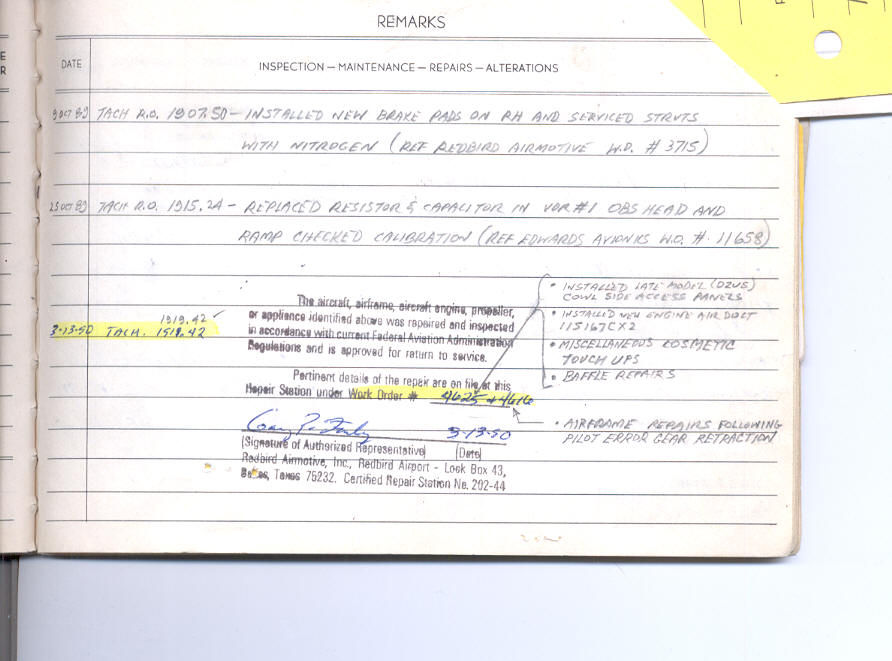 REMARKS
DATE
INSPECTION — MAINTENANCE — REPAIRS — ALTERATIONS
9 OCT 89 TACH R.O. 1907.50 — INSTALLED NEW BRAKE PADS ON RH AND SERVICED STRUTS
WITH NITROGEN (REF REDBIRD AIRMOTIVE W.O. # 3715)
25 OCT 89 TACH R.O. 1915.24 — REPLACED RESISTOR & CAPACITOR IN VOR #1 OBS HEAD AND
RAMP CHECKED CALIBRATION (REF EDWARDS AVIONICS W.O. #. 11658)
The aircraft, airframe, aircraft engine, propeller,
or appliance identified above was repaired and inspected
in accordance with current Federal Aviation Administration
Regulations and is approved for return to service.
1919.42 ✓
3-13-90 TACH. 1919.42
Pertinent details of the repair are on file at this
Repair Station under Work Order # 4625 & 4616
3-13-90
(Signature of Authorized Representative) (Date)
Redbird Airmotive, Inc., Redbird Airport - Lock Box 43,
Texas 75232. Certified Repair Station No. 202-44
• INSTALLED LATE MODEL (DZUS)
COWL SIDE ACCESS PANELS
• INSTALLED NEW ENGINE AIR DUCT
115167CX2
• MISCELLANEOUS COSMETIC
TOUCH UPS
• BAFFLE REPAIRS
• AIRFRAME REPAIRS FOLLOWING
PILOT ERROR GEAR RETRACTION